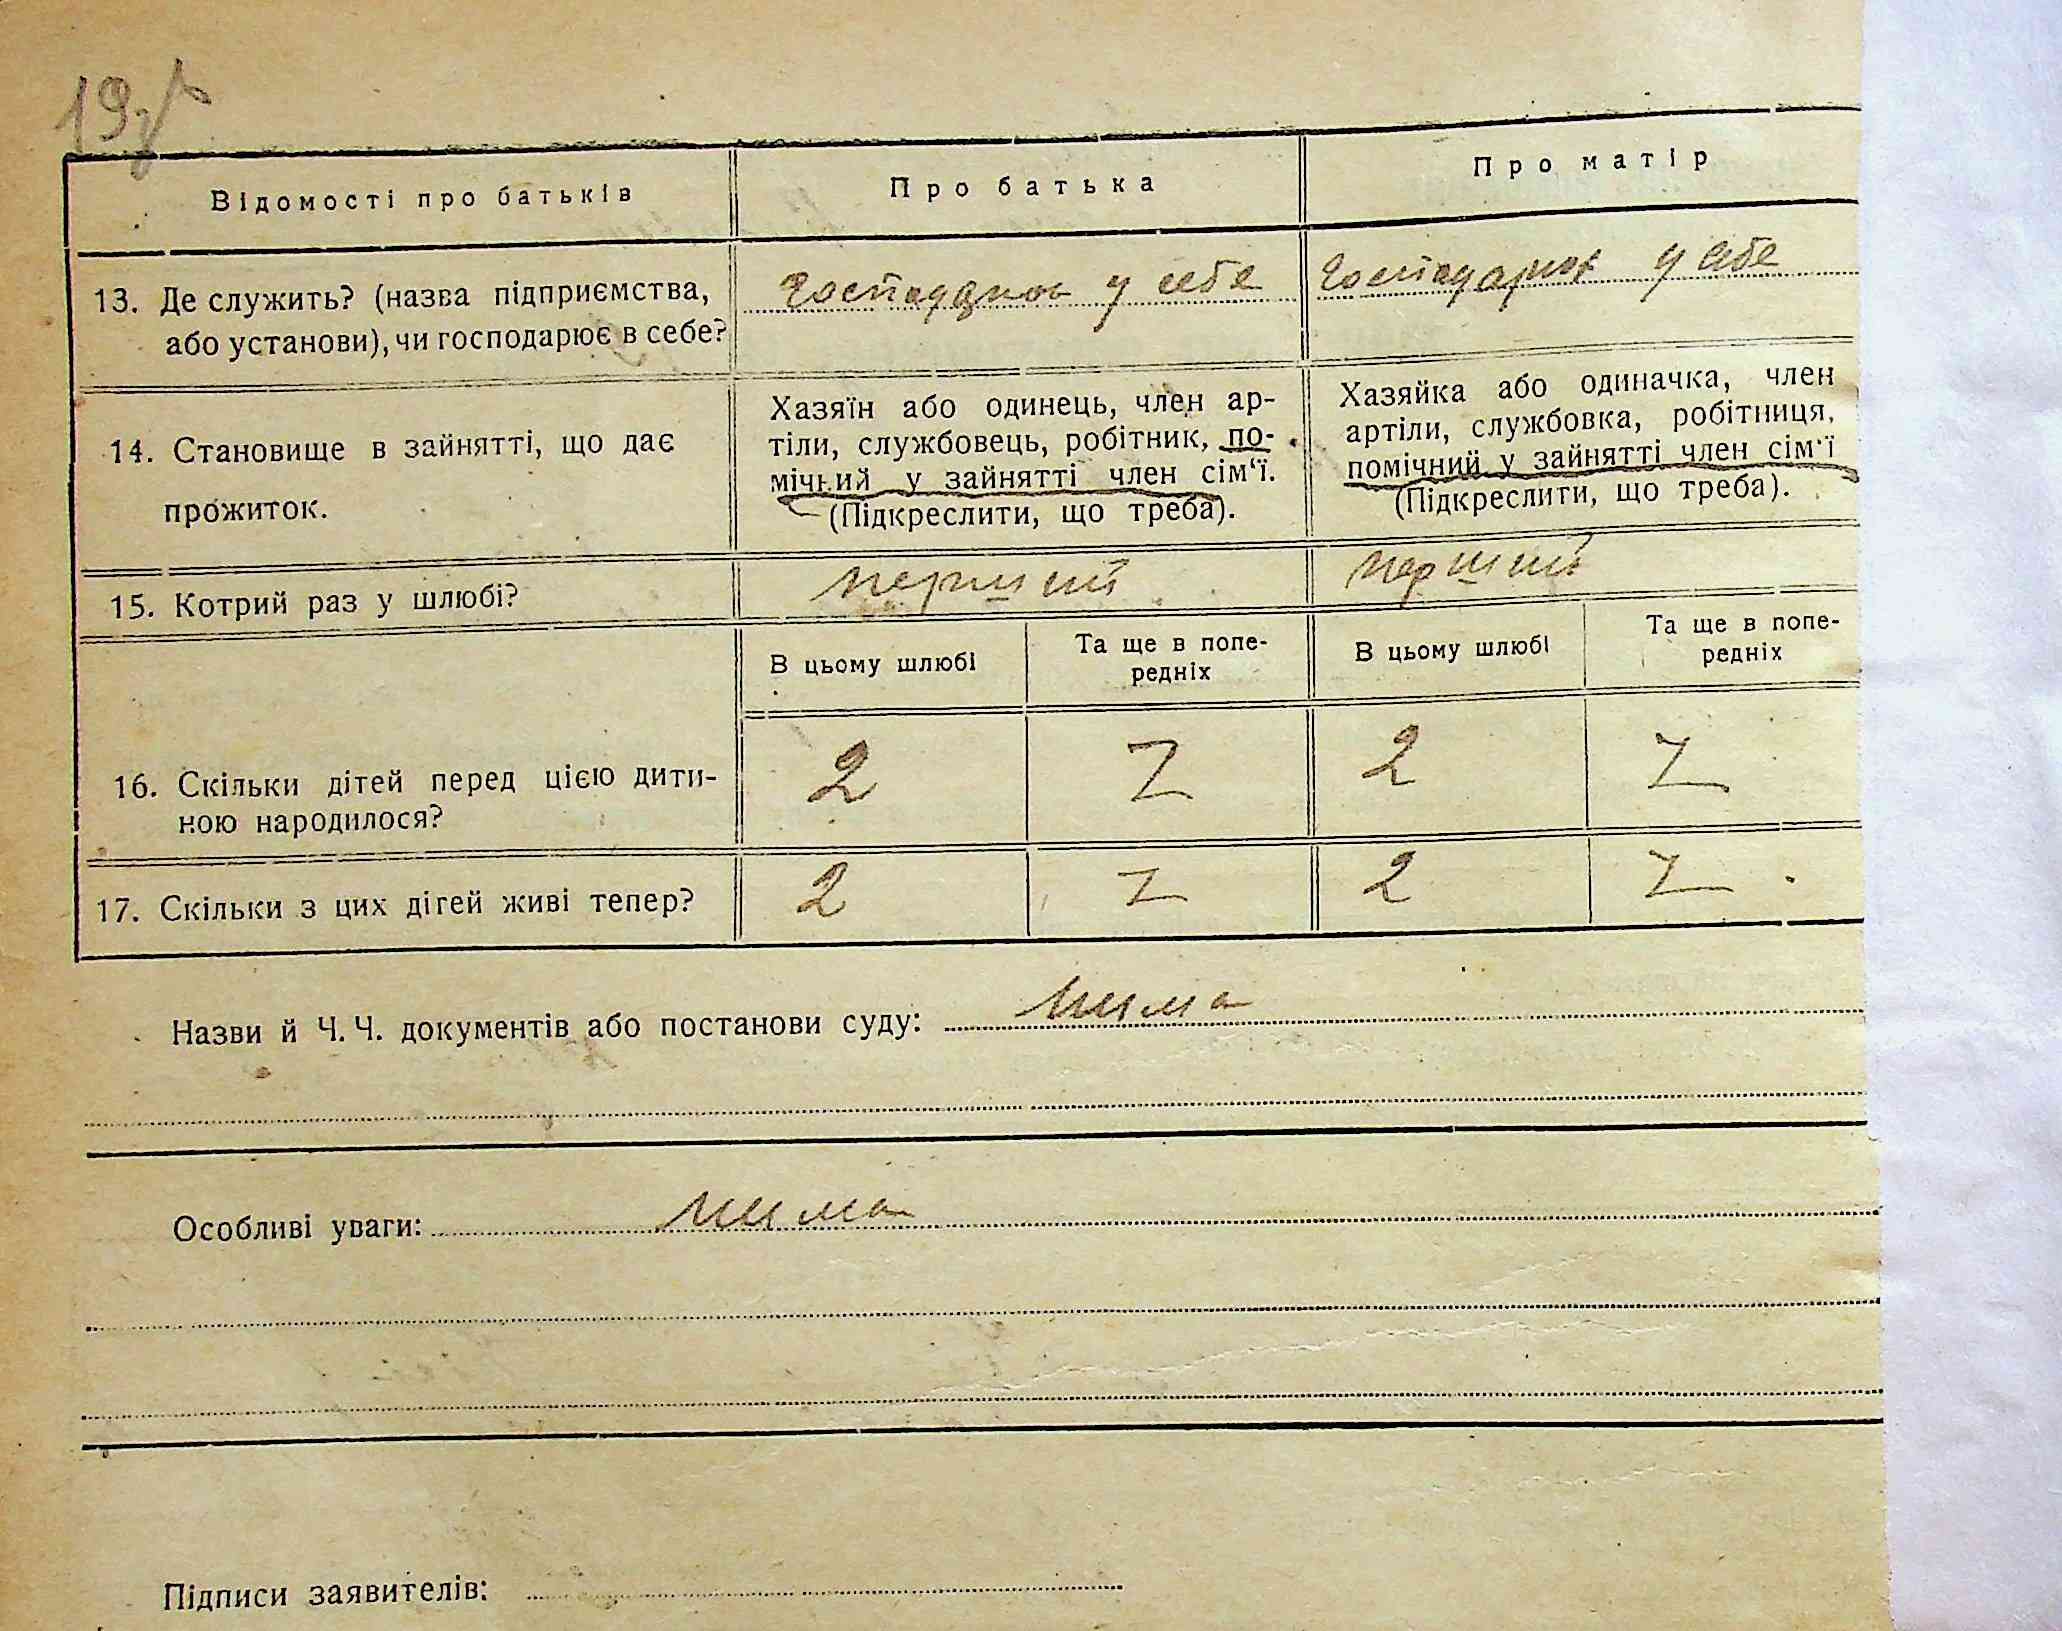 19
Відомості про батьків
Про батька
Про матір
13. Де служить? (назва підприємства,
або установи), чи господарює в себе?
у себе
у себе
14. Становище в зайнятті, що дає
прожиток.
Хазяїн або одинець, член ар-
тіли, службовець, робітник, по-
мічний у зайнятті член сім‘ї.
(Підкреслити, що треба).
Хазяйка або одиначка, член
артіли, службовка, робітниця,
помічний у зайнятті член сім‘ї
(Підкреслити, що треба).
15. Котрий раз у шлюбі?
перший
перший
В цьому шлюбі
Та ще в попе-
редніх
В цьому шлюбі
Та ще в попе-
редніх
16. Скільки дітей перед цією дити-
ною народилося?
2
Z
2
Z
17. Скільки з цих дітей живі тепер?
2
Z
2
Z
Назви й Ч. Ч. документів або постанови суду: нима
Особливі уваги: нима
Підписи заявителів: